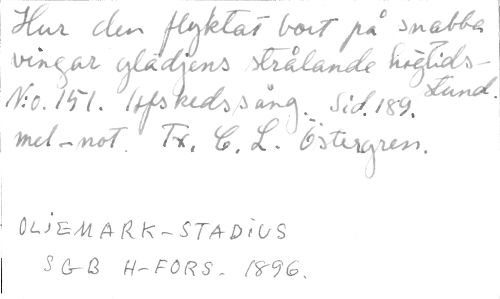 Hur den flyktat bort på snabba
vingar glädjens strålande högtids-
stund.
N:o. 151. Afskedssång. Sid. 189.
mel-not. Tx. C. L. Östergren.
OLIEMARK-STADIUS
SGB H-FORS. 1896.